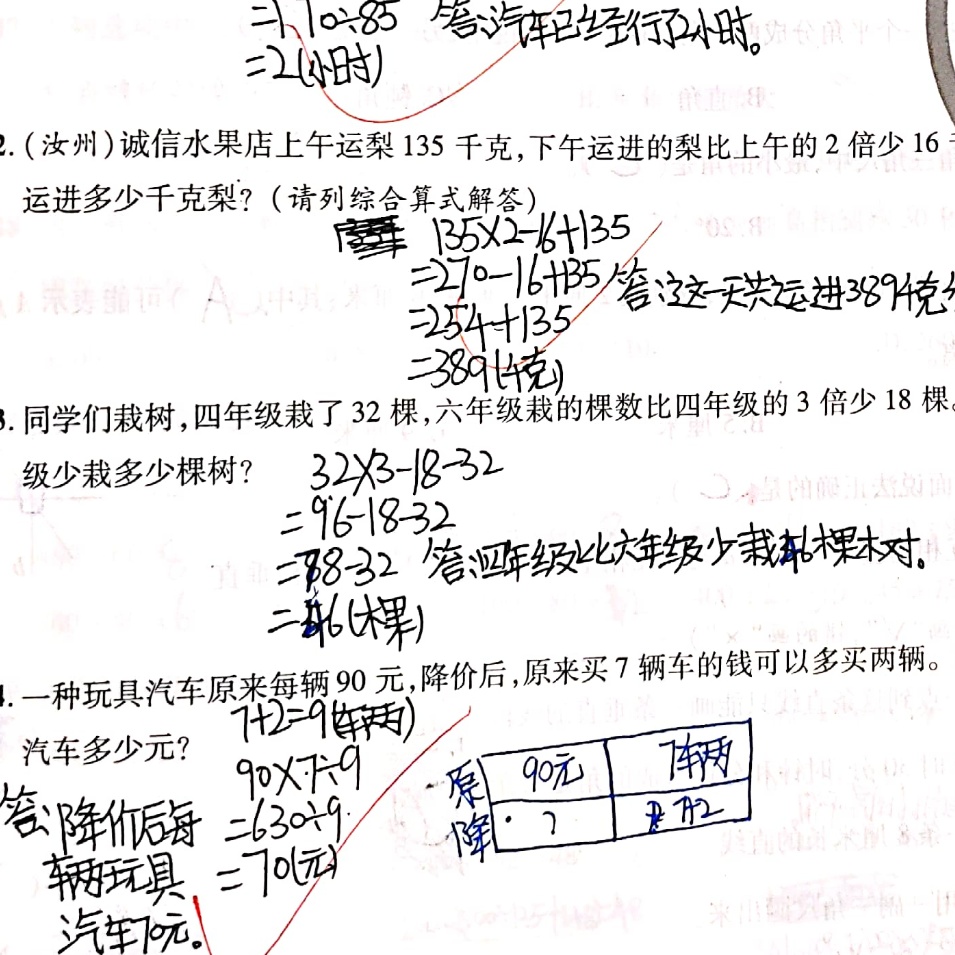 =170÷85 答:汽车已经行了2小时。
=2(小时)
2.(汝州)诚信水果店上午运梨 135 千克,下午运进的梨比上午的 2 倍少 16
运进多少千克梨?(请列综合算式解答)
135×2-16+135
=270-16+135 答:这一天共运进389千克
=254+135
=389(千克)
3.同学们栽树,四年级栽了 32 棵,六年级栽的棵数比四年级的 3 倍少 18 棵。
级少栽多少棵树? 32×3-18-32
=96-18-32
=78-32 答:四年级比六年级少栽46棵树。
=46(棵)
4.一种玩具汽车原来每辆 90 元,降价后,原来买 7 辆车的钱可以多买两辆。
7+2=9(辆)
汽车多少元?
90×7÷9
=630÷9
=70(元)
答:降价后每
辆玩具
汽车70元。
原 90元 7辆
降 ? 7+2